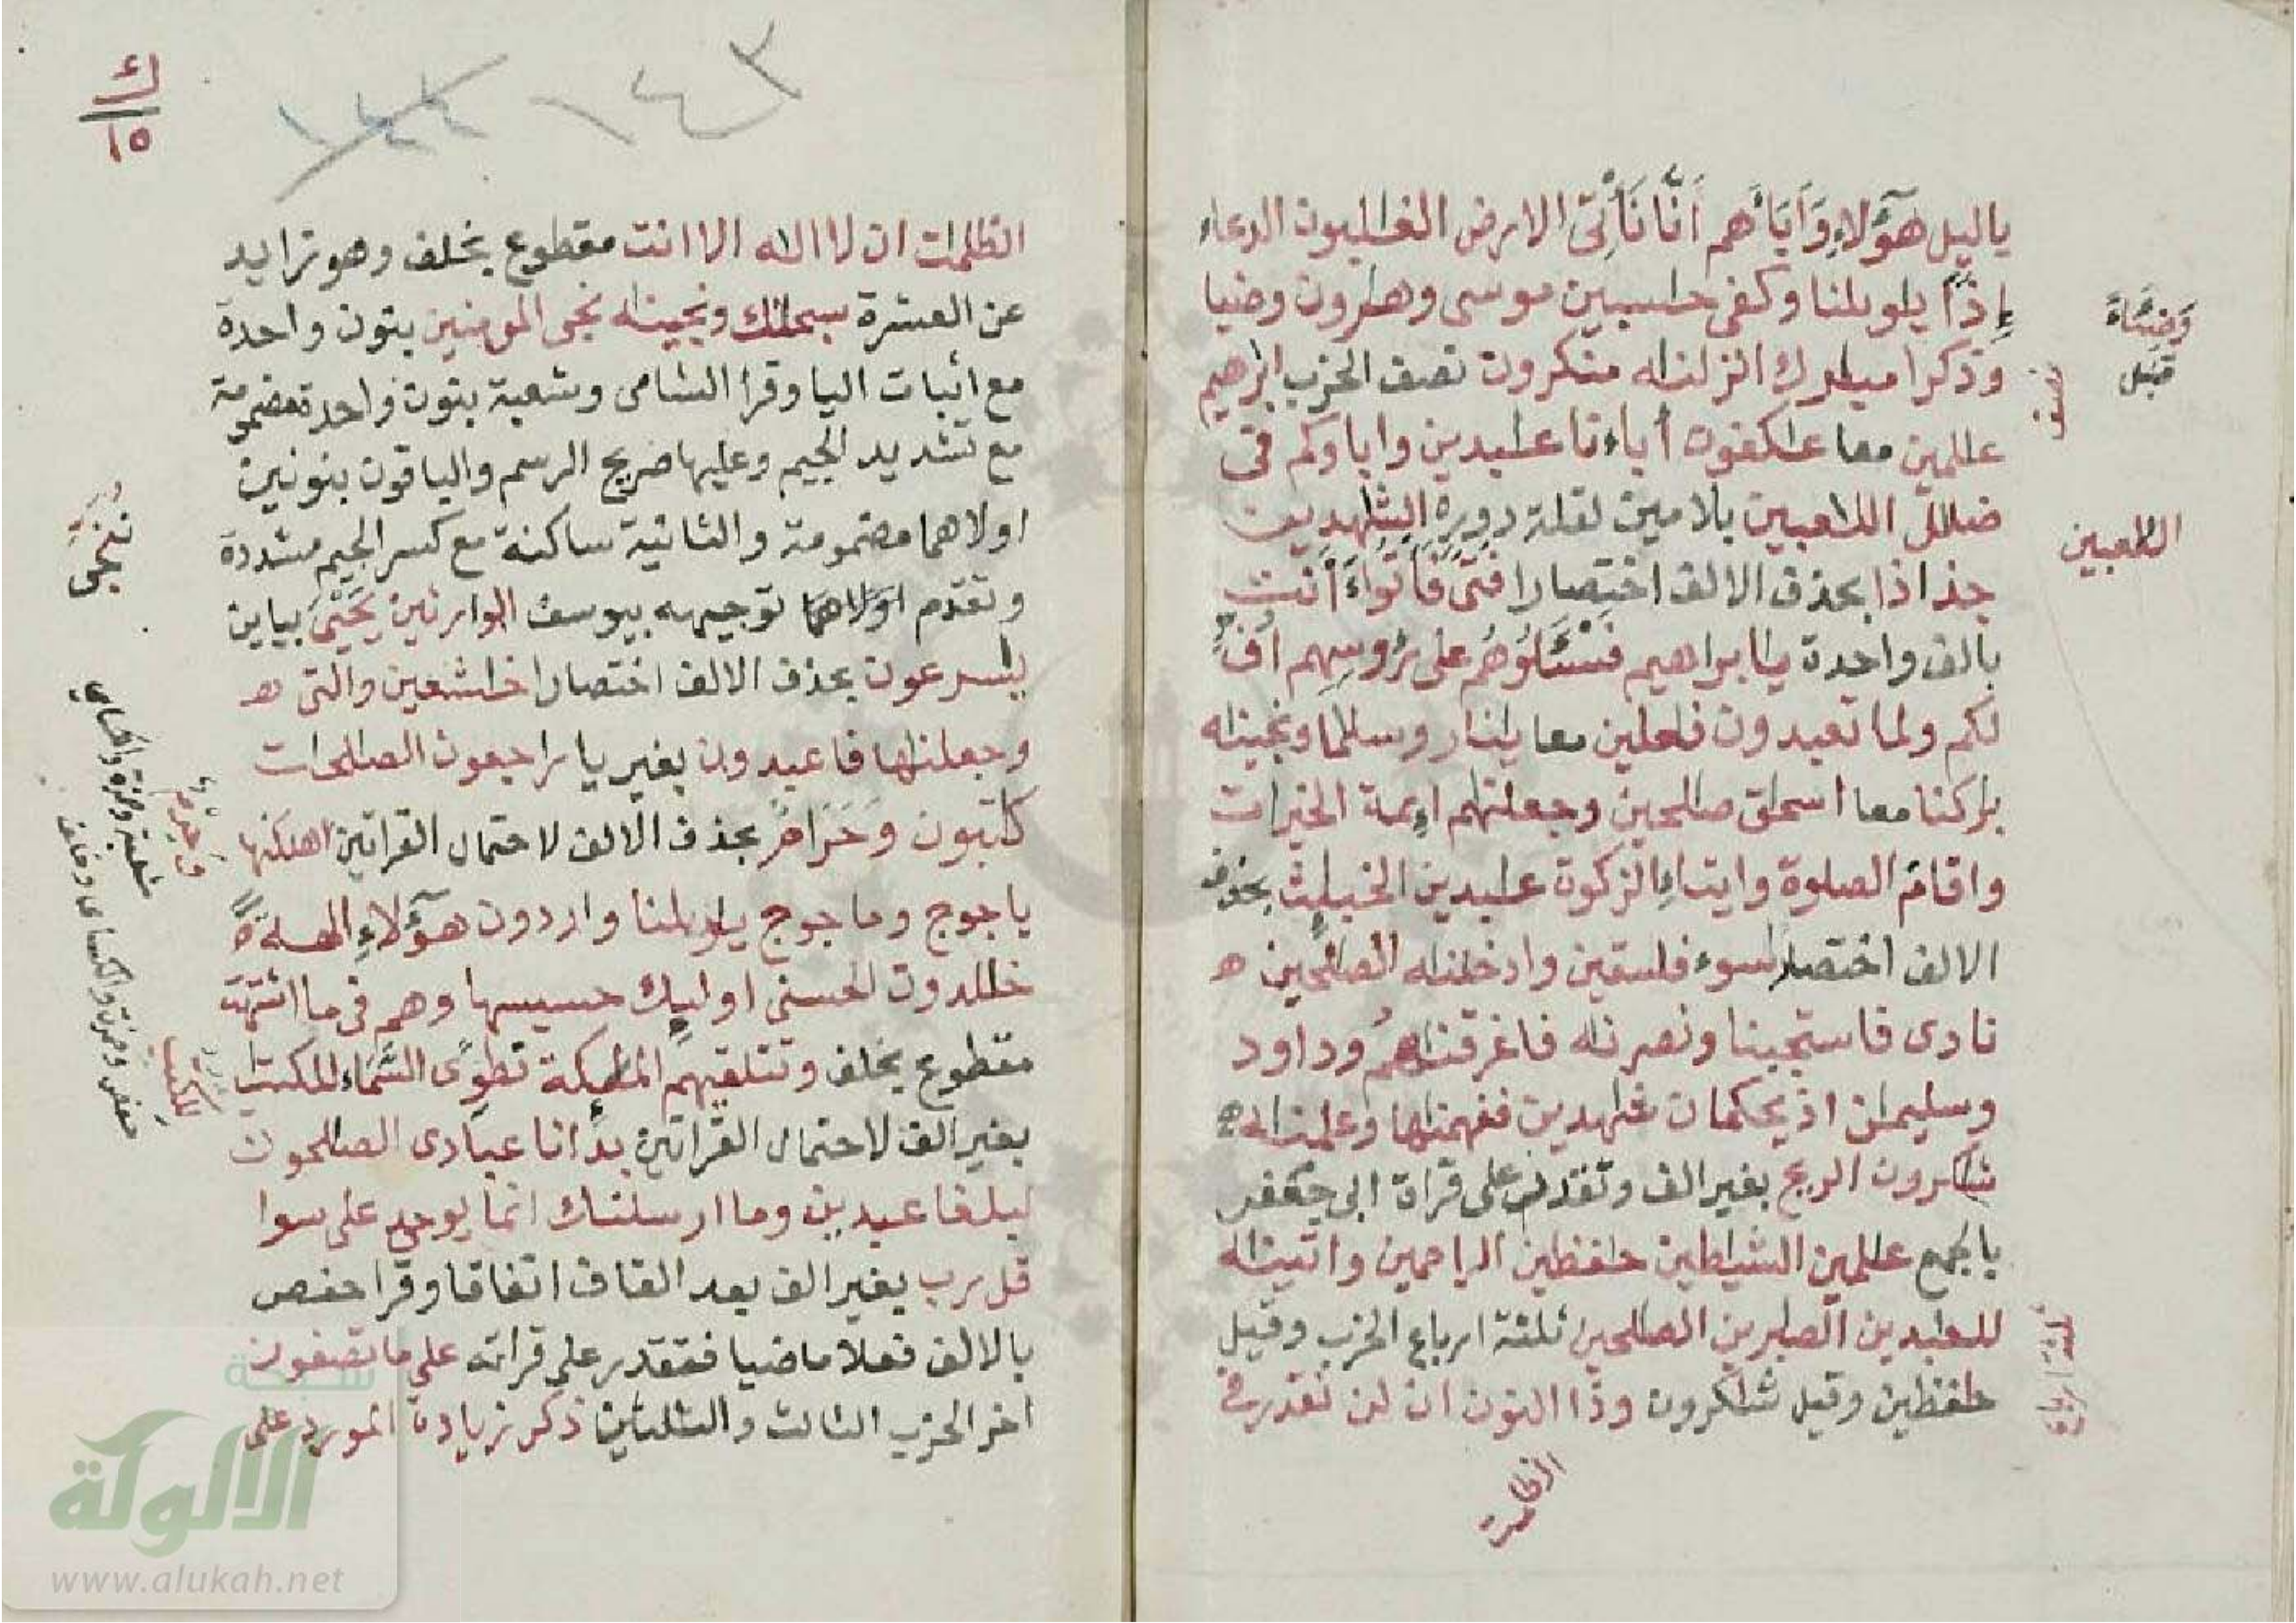 ياليل هؤلاء وأباءهم أنا نأتى الارض الغلبون الدعاء
إذا يلويلنا وكفى حسبين موسى وهرون وضيا
وذكرا مبرك انزلنه منكرون نصف الحزب ابرهيم
علمين معا عكفون أباءنا عبدين واباوكم فى
ضلل اللعبين بلامين لقلة دوره الشهدين
جذاذا بحذف الالف اختصارا فتى فأتوا ءأنت
بالف واحدة يابراهيم فسئلوهم على رؤوسهم أف
لكم ولما تعبدون فعلين معا ينار وسلما ونجينه
بركنا معا اسحق صلحين وجعلنهم اءيمة الخيرات
واقام الصلوة وايتاء الزكوة عبدين الخبيث بحذف
الالف اختصارا سوء فسقين وادخلنه الصلحين ه
نادى فاستجبنا ونصرنه فاغرقنهم وداود
وسليمن اذ يحكمان شهدين ففهمنها وعلمنه
شكرون الريح بغير الف وتقدم على قراة ابى جعفر
بالجمع علمين الشيطين حفظين الراحمين واتينه
للعبدين الصبرين الصلحين ثلثة ارباع الحزب وقيل
حفظين وقيل شكرون وذا النون ان لن نقدر فى
وضياء
قبل
نصف
اللعبين
ثلثة ارباع
الظلمت
ك
١٥
١٤٣
الظلمت ان لا اله الا انت مقطوع بخلف وهو زايد
عن العشرة سبحنك ونجينه نجى المومنين بنون واحدة
مع اثبات اليا وقرا الشامى وشعبة بنون واحدة مضمومة
مع تشديد الجيم وعليها صريح الرسم والباقون بنونين
اولاهما مضمومة والثانية ساكنة مع كسر الجيم مشددة
وتقدم اولاهما توجيهه بيوسف الوارثين يحيى بياين
يسرعون بحذف الالف اختصارا خشعين والتى ه
وجعلنها فاعبدون بغير يا راجعون الصلحات
كتبون وحرام بحذف الالف لاحتمال القراتين اهلكنها
ياجوج وماجوج يويلنا واردون هؤلاء الهة
خلدون الحسنى اوليك حسيسها وهم فى ما اشتهت
مقطوع بخلف وتتلقيهم الملئكة نطوى السماء للكتب
بغير الف لاحتمال القراتين بدأنا عبادى الصلحون
لبلغا عبدين وما ارسلنك انما يوحى على سوا
قل رب بغير الف بعد القاف اتفاقا وقرا حفص
بالالف فعلا ماضيا فقدر على قراته على ما تصفون
اخر الحزب الثالث والثلثين ذكر زيادة المورد على
ننجى
وحرم
شعبة وحمزة والكساى
للكتاب
حفص وحمزة والكساى وخلف
شبكة
الألوكة
www.alukah.net